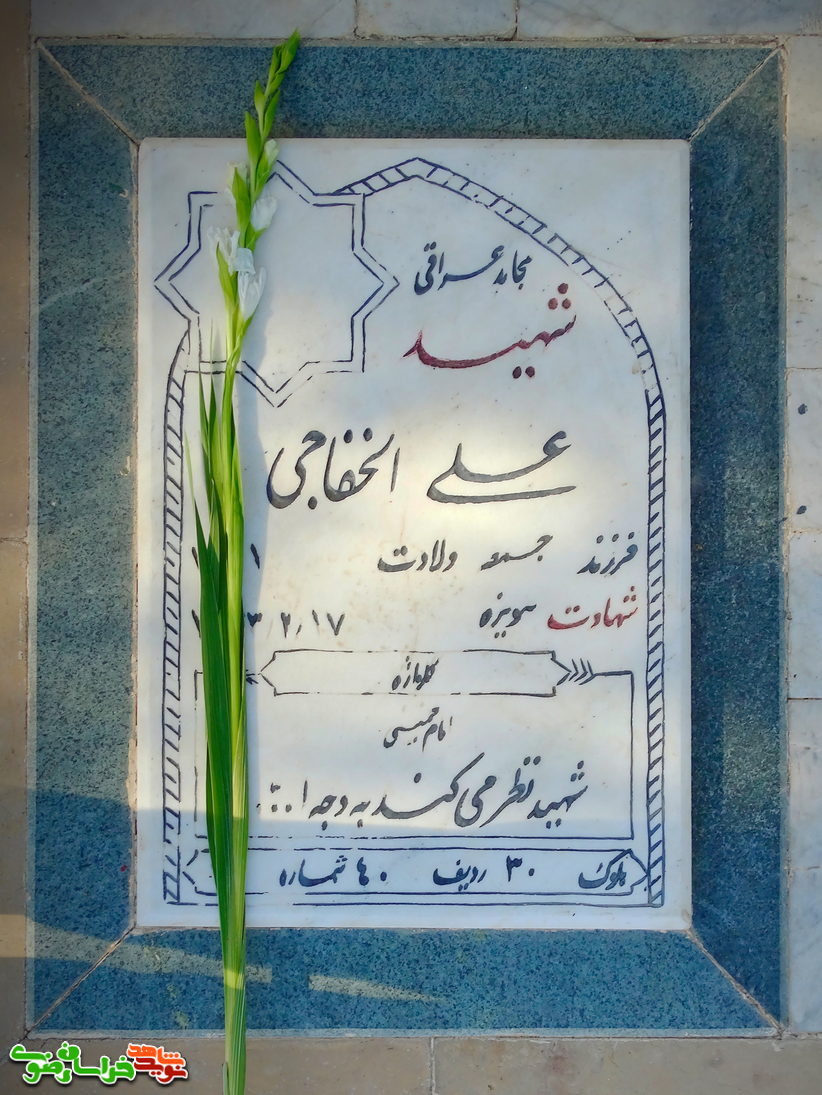 مجاهد عراقی
شهید
علی الخفاجی
فرزند جسمه ولادت
شهادت هویزه ۲٫۱۷
گلواژه
امام خمینی
شهید نظر می کند به وجه ا...
بلوک ۳۰ ردیف ۴۰ شماره
نوید شاهد خراسان رضوی